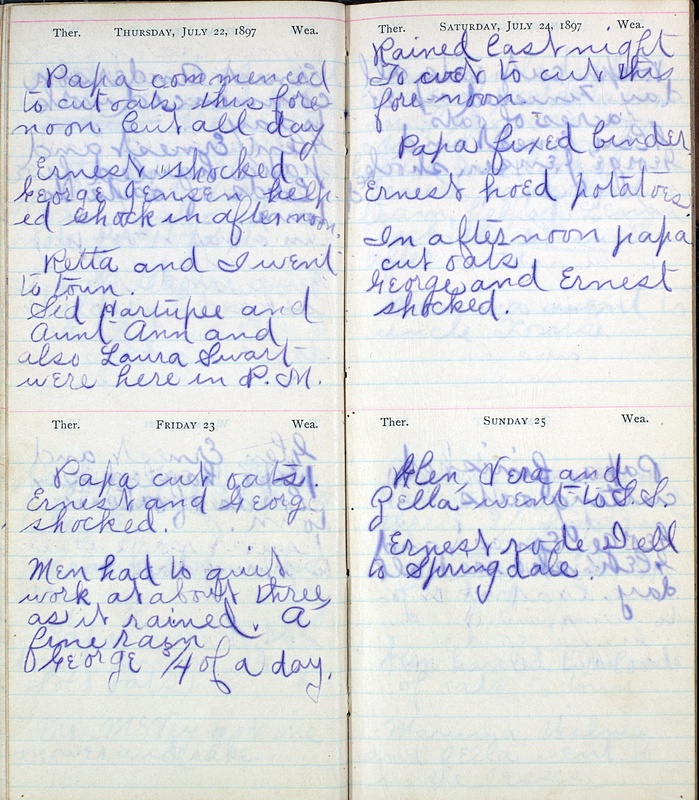 Ther. THURSDAY, JULY 22, 1897 Wea.
Papa commenced
to cut oats this fore
noon. Cut all day
Ernest shocked
George Jensen help-
ed shock in afternoon.
Retta and I went
to town.
Sid Hartupee and
Aunt Ann and
also Laura Swart
were here in P.M.
Ther. FRIDAY 23 Wea.
Papa cut oats.
Ernest and Georg
shocked.
Men had to quit
work at about three
as it rained. A
fine rain
George 3/4 of a day.
Ther. SATURDAY, JULY 24, 1897 Wea.
Rained last night
To wet to cut this
fore-noon.
Papa fixed binder
Ernest hoed potatoes.
In afternoon papa
cut oats
George and Ernest
shocked.
Ther. SUNDAY 25 Wea.
Glen, Vera and
Zella went to S.S.
Ernest rode Dell
to Springdale.